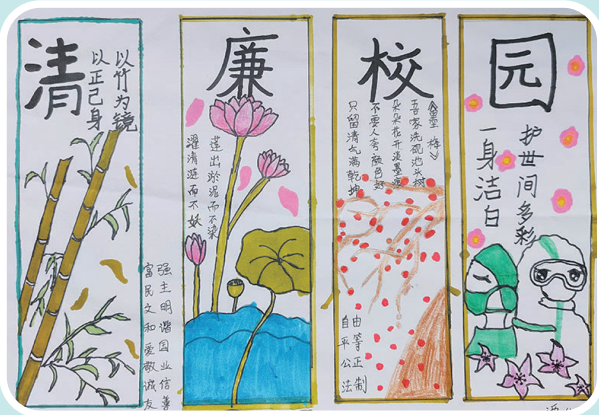 清
以竹为镜
以正己身
富强
民主
文明
和谐
爱国
敬业
诚信
友善
廉
莲出淤泥而不染
濯清涟而不妖
校
《墨梅》
吾家洗砚池头树
朵朵花开淡墨痕
不要人夸颜色好
只留清气满乾坤
自由
平等
公正
法制
园
护世间多彩
一身洁白